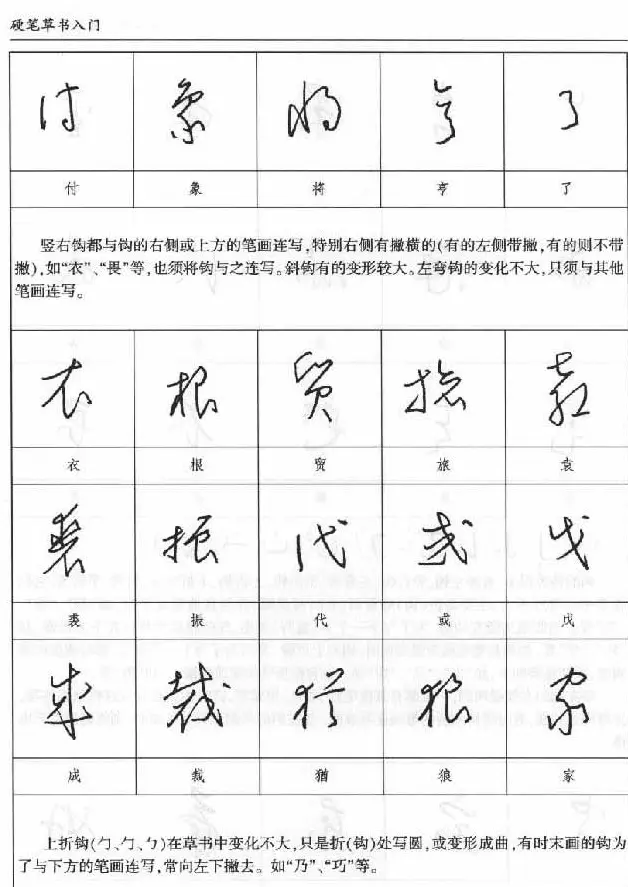 硬笔草书入门
付 象 将 亨 了
付 象 将 亨 了
竖右钩都与钩的右侧或上方的笔画连写,特别右侧有撇横的(有的左侧带撇,有的则不带
撇),如“衣”、“畏”等,也须将钩与之连写。斜钩有的变形较大。左弯钩的变化不大,只须与其他
笔画连写。
衣 根 贸 旅 袁
衣 根 贸 旅 袁
裘 振 代 或 戍
裘 振 代 或 戍
成 裁 猶 狼 家
成 裁 猶 狼 家
上折钩(勹、㇆、ㄅ)在草书中变化不大,只是折(钩)处写圆,或变形成曲,有时末画的钩为
了与下方的笔画连写,常向左下撇去。如“乃”、“巧”等。